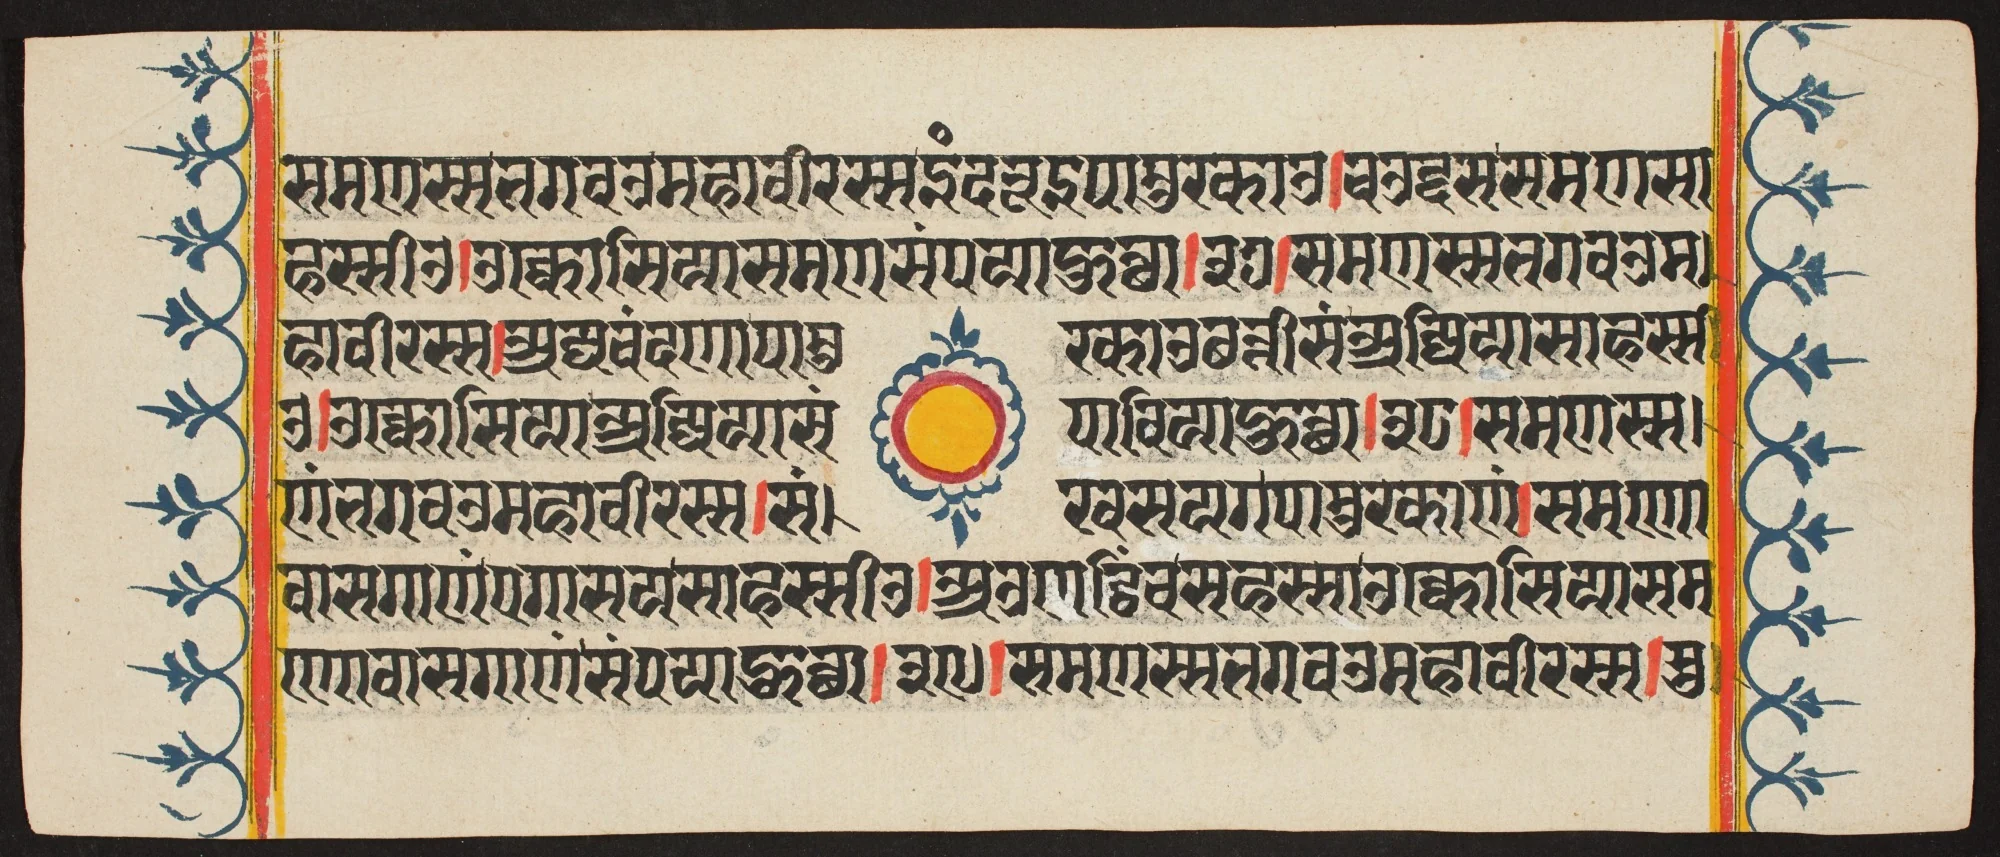 समणस्सभगवउमहावीरस्सइंदभूइपामुरकाउ।चउद्दससमणसा
हस्सीउ।उक्कोसियासमणसंपयाहुत्था।३७।समणस्सभगवउम।
हावीरस्स।अज्जचंदणापामु रकाउछत्तीसंअज्जियासाहस्सी
उ।उक्कोसियाअज्जियासं पावियाहुत्था।३८।समणस्स।
णंभगवउमहावीरस्स।सं। खसयगपामुरकाणं।समणो
वासगाणंएगासयसाहस्सीउ।अउणट्ठिंचसहस्साउक्कोसियासम
णोवासगाणंसंपयाहुत्था।३९।समणस्सभगवउमहावीरस्स।सु